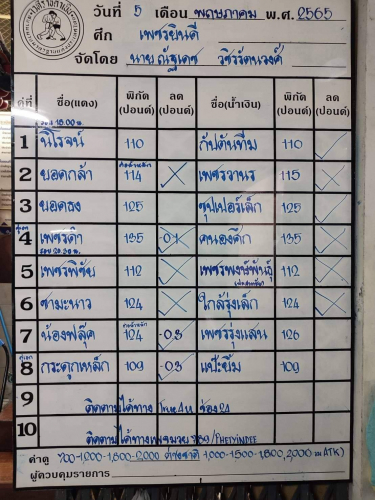 วันที่ 5 เดือน พฤษภาคม พ.ศ. 2565
ศึก เพชรยินดี
จัดโดย นาย ณัฐเดช วชิรรัตนวงศ์
คู่ที่ ชื่อ(แดง) พิกัด (ปอนด์) ลด (ปอนด์) ชื่อ(น้ำเงิน) พิกัด (ปอนด์) ลด (ปอนด์)
1 นิโรจน์ 110 กัปตันทีม 110
2 ยอดกล้า 114 เพชรวานร 115
3 ยอดธง 125 ซุปเปอร์เล็ก 125
4 เพชรดำ 135 -0.1 คนองศึก 135
5 เพชรพิชัย 112 เพชรพงษ์พันธุ์ 112
6 ชามะนาว 124 ใกล้รุ่งเล็ก 124
7 น้องฟลุ๊ค 124 -0.3 เพชรรุ่งแสน 126
8 กระดูกเหล็ก 109 -0.3 แป๊ะยิ้ม 109
9 ติดตามได้ทาง True4U ช่อง 24
10 ติดตามได้ทางเพชรมวย /PHETYINDEE
ค่าดู 700-1,000-1,500-2,000 ต่างชาติ 1,000-1,500-1,800, 2,000 ATK)
ผู้ควบคุมรายการ